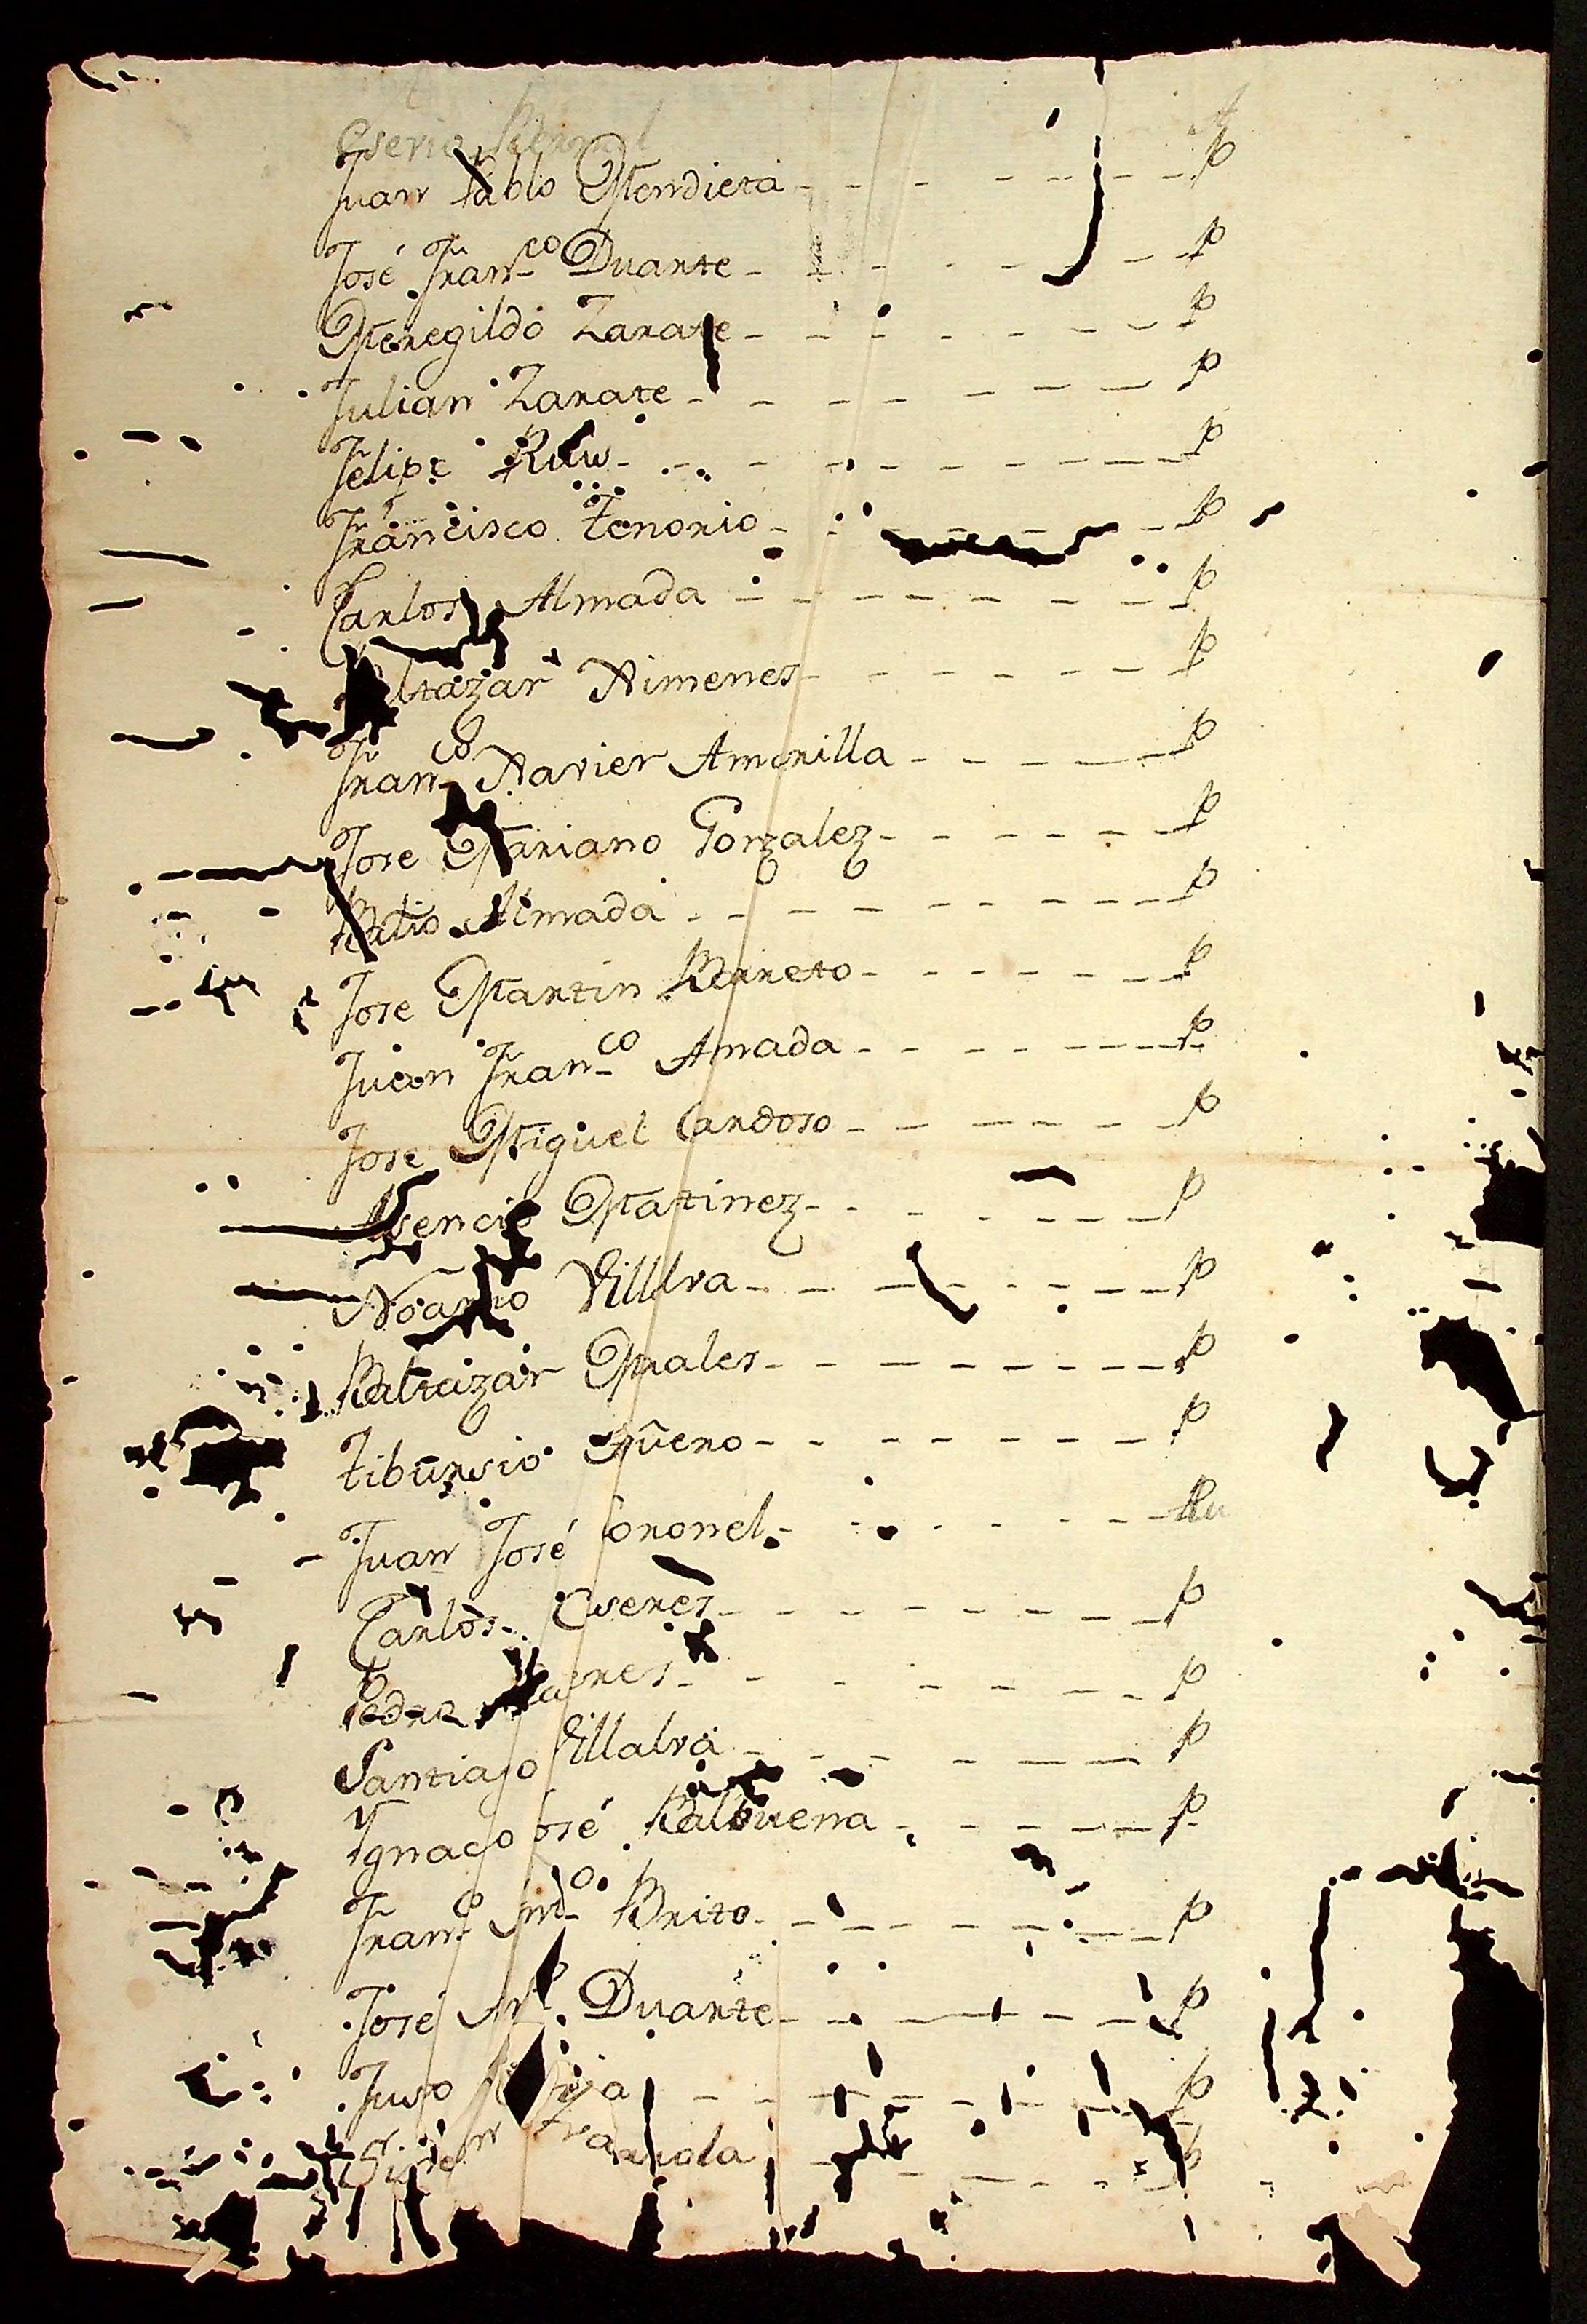 Juan Pablo Mendieta - - - - - - - p
José Fran.co Duarte - - - - - - p
Meregildo Zarate - - - - - - - p
Julian Zarate - - - - - - p
Felipe - - - - - - - - p
Francisco Tenorio - - - - - p
Carlos Almada - - - - - - - - p
ltazar Ximenes - - - - - - p
Fran.co Xavier Amarilla - - - - - p
Jose Mariano Gonzalez - - - - - - p
Almada - - - - - - - - - p
Jose Martin Barreto - - - - - - p
Juan Fran.co Amada - - - - - - - p
Jose Miguel Cardoso - - - - - - p
Asencio Matinez - - - - - - - p
Villalva - - - - - - - p
Baltazar Males - - - - - - - - p
Tibursio - - - - - - - p
Juan José Coronel - - - - - -
Carlos - - - - - - - - p
Pedro - - - - - - - p
Santiago Villalva - - - - - - p
Ygnacio José Balbuena - - - - - p
Fran.co Brito - - - - - - p
José Duarte - - - - - - p
- - - - - - p
- - - - - p